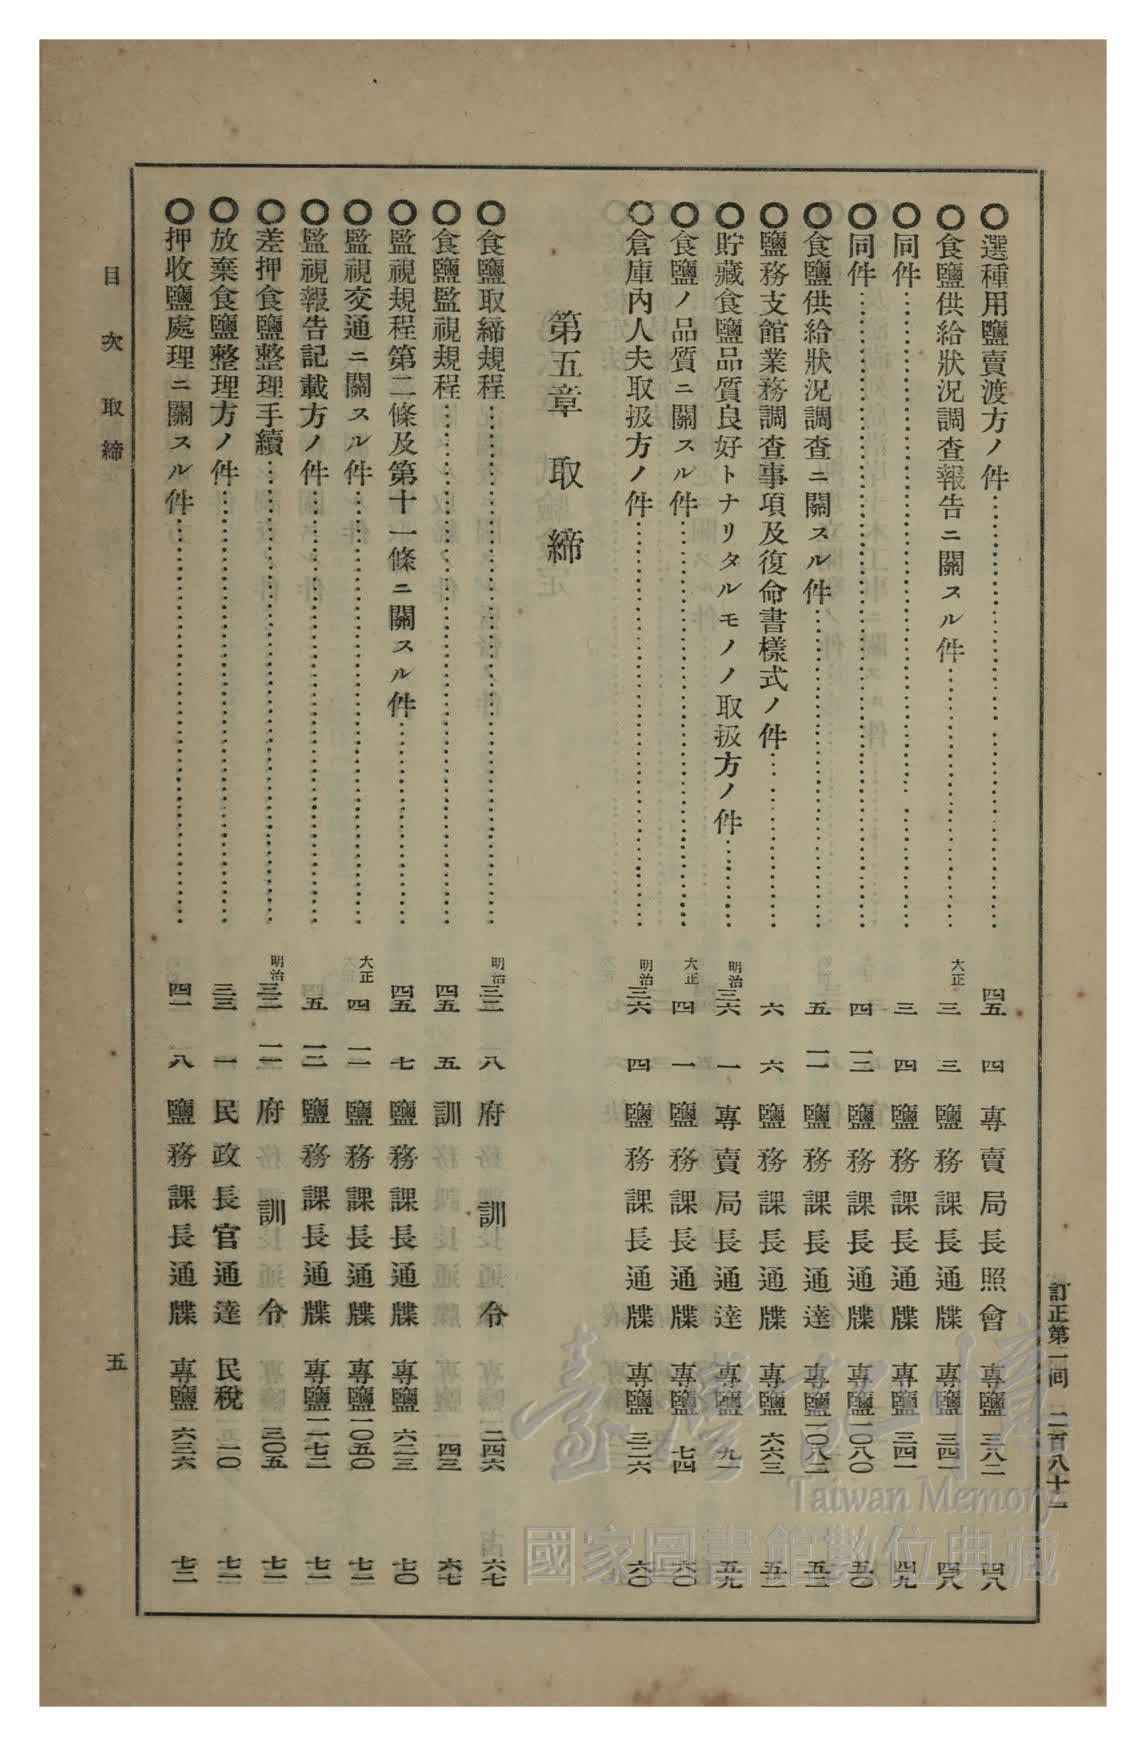 訂正第一回 二百八十一
〇選種用鹽賣渡方ノ件 四五 四 專賣局長照會 專鹽 三八二 四八
〇食鹽供給狀況調查報告ニ關スル件 大正 三 三 鹽務課長通牒 專鹽 三四一 四八
〇同件 三 四 鹽務課長通牒 專鹽 三四一 四九
〇同件 四 一二 鹽務課長通牒 專鹽 一〇八〇 五〇
〇食鹽供給狀況調查ニ關スル件 五 一一 鹽務課長通達 專鹽 一〇八二 五二
〇鹽務支館業務調查事項及復命書樣式ノ件 六 六 鹽務課長通牒 專鹽 六六三 五二
〇貯藏食鹽品質良好トナリタルモノノ取扱方ノ件 明治 三六 一 專賣局長通達 專鹽 九一 五九
〇食鹽ノ品質ニ關スル件 大正 四 一 鹽務課長通牒 專鹽 七四 六〇
〇倉庫內人夫取扱方ノ件 明治 三六 四 鹽務課長通牒 專鹽 三二六 六〇
第五章 取締
〇食鹽取締規程 明治 三二 八 府訓令 二四六 六七
〇食鹽監視規程 四五 五 訓 四三 六七
〇監視規程第二條及第十一條ニ關スル件 四五 七 鹽務課長通牒 專鹽 六二三 七〇
〇監視交通ニ關スル件 大正 四 一一 鹽務課長通牒 專鹽 一〇五〇 七二
〇監視報告記載方ノ件 五 一二 鹽務課長通牒 專鹽 一一七二 七二
〇差押食鹽整理手續 明治 三二 一一 府訓令 三〇五 七二
〇放棄食鹽整理方ノ件 三三 一 民政長官通達 民稅 一〇 七二
〇押收鹽處理ニ關スル件 四一 八 鹽務課長通牒 專鹽 六三六 七二
目次 取締 五
臺灣記憶
Taiwan Memory
國家圖書館數位典藏